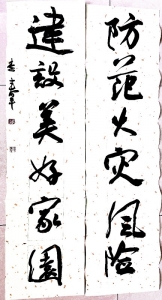 防范火灾风险
建設美好家園